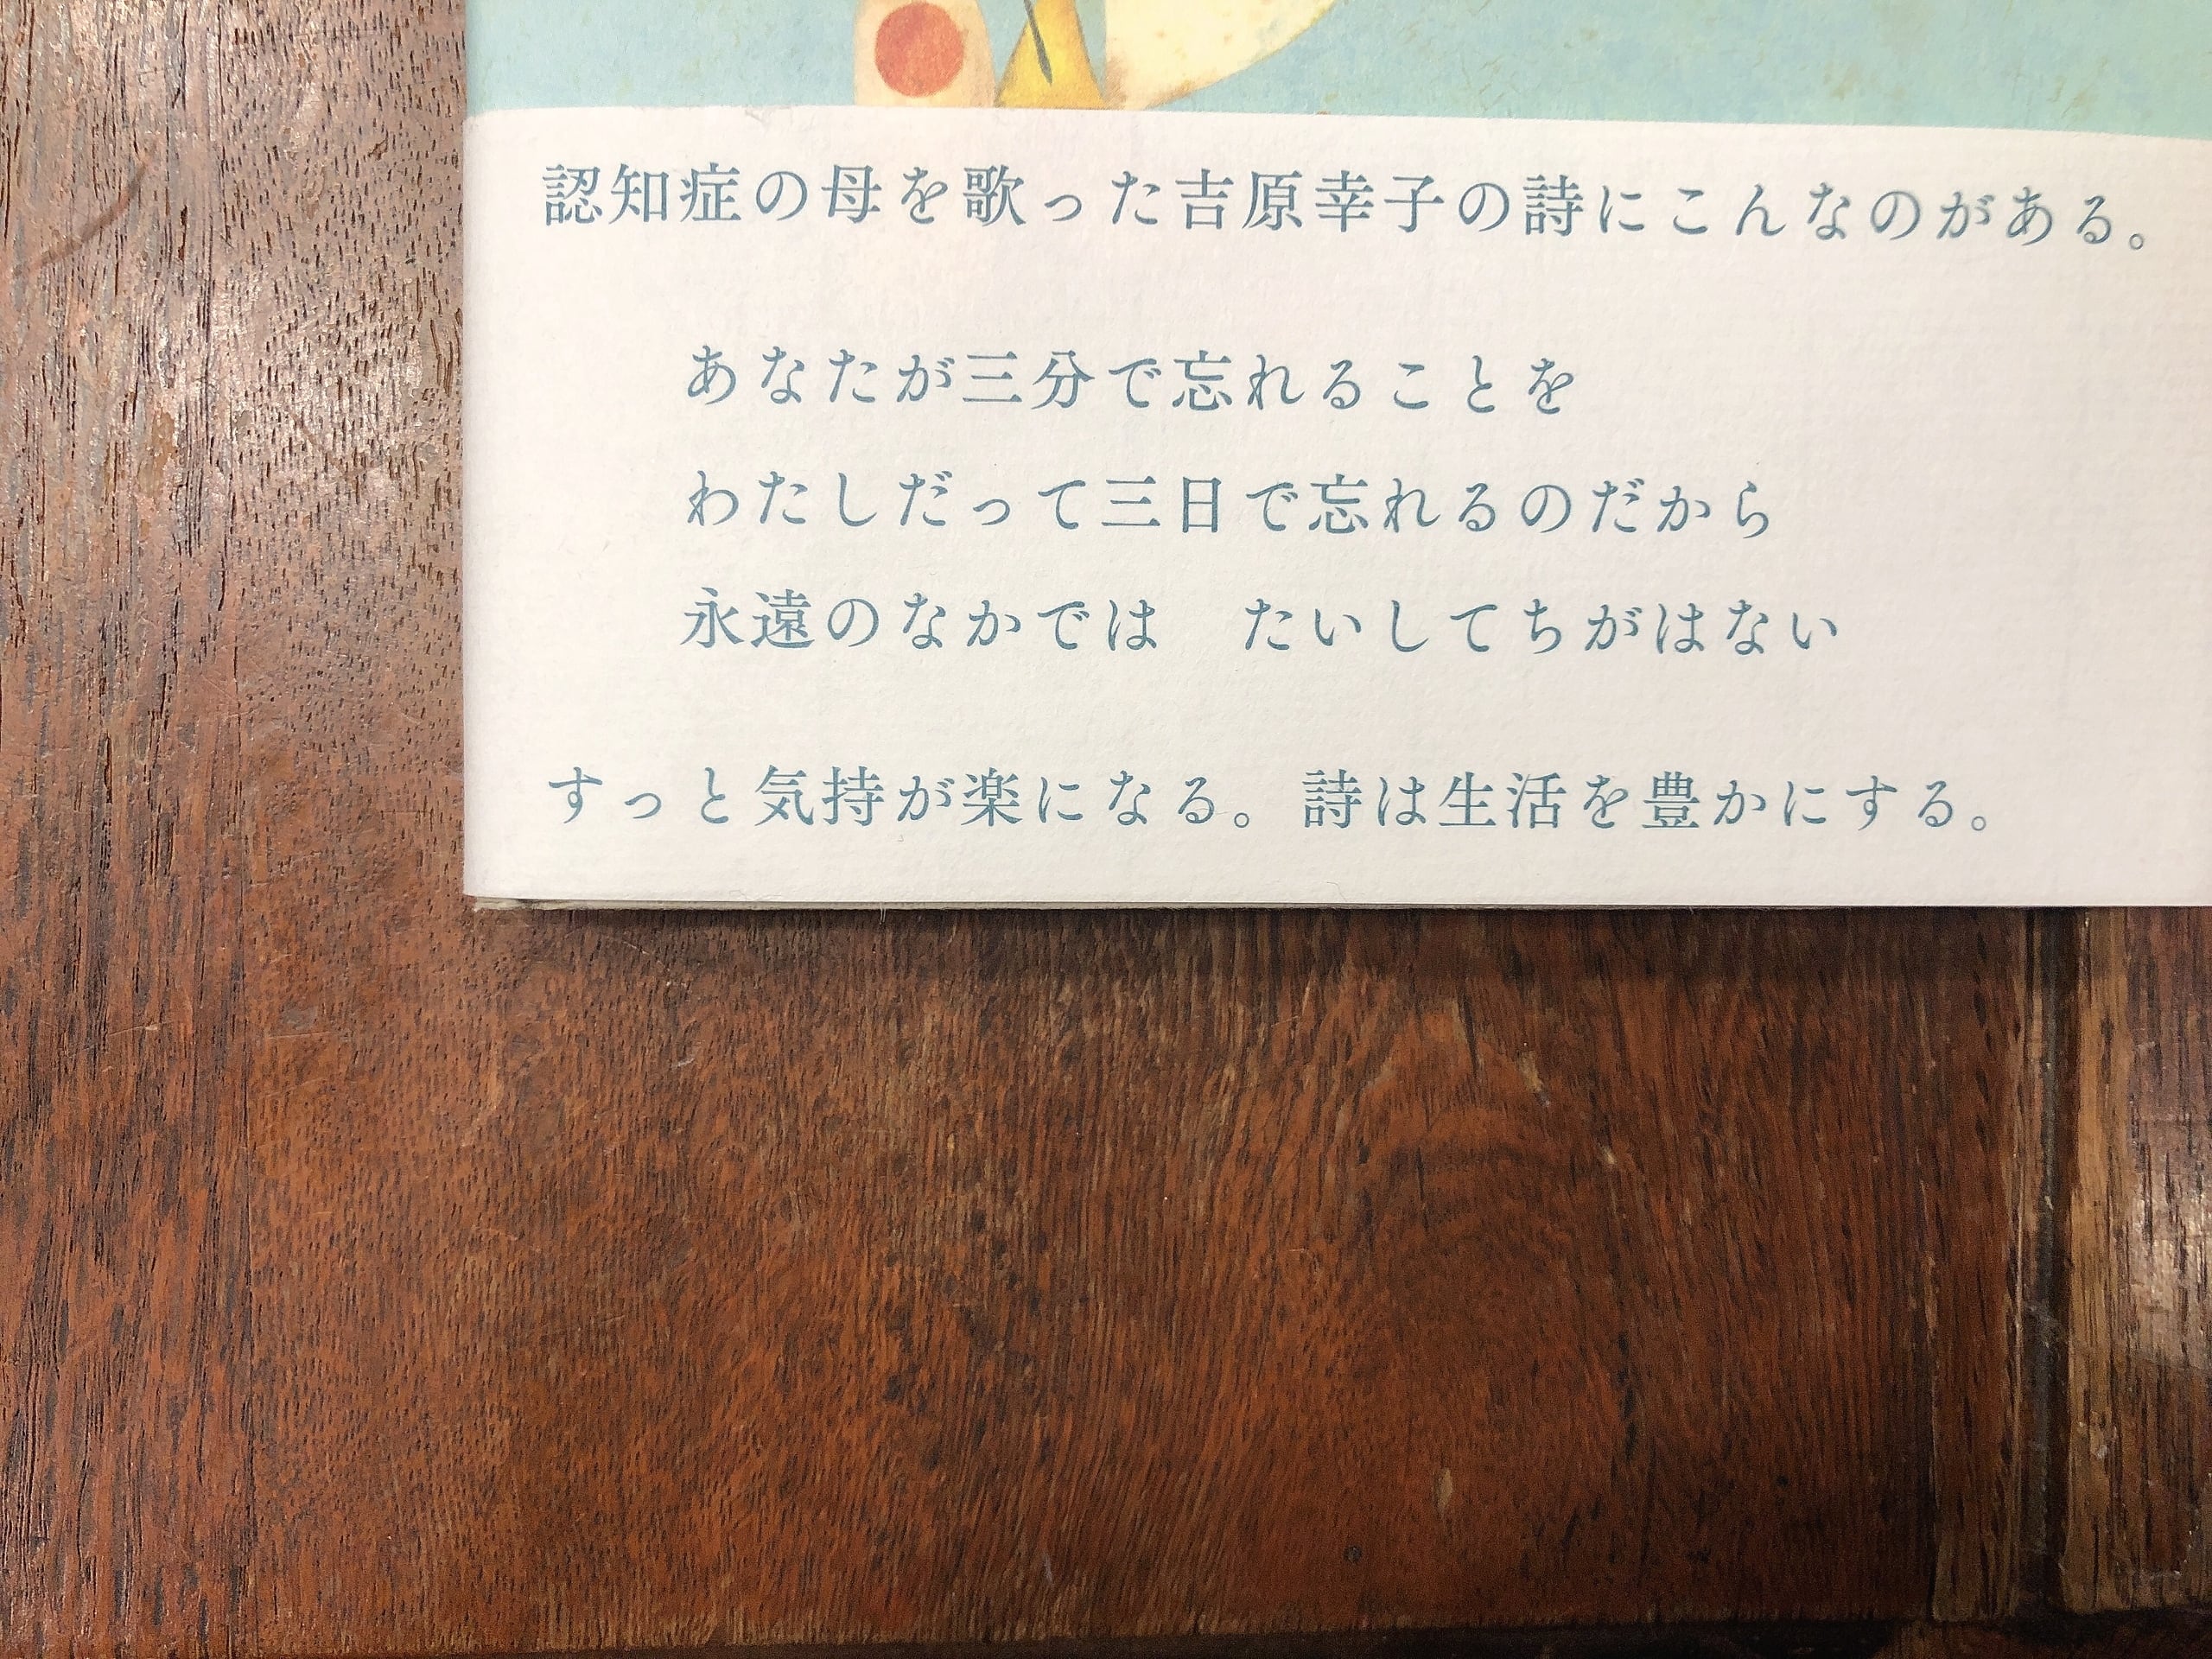 認知症の母を歌った吉原幸子の詩にこんなのがある。
あなたが三分で忘れることを
わたしだって三日で忘れるのだから
永遠のなかでは　たいしてちがはない
すっと気持が楽になる。詩は生活を豊かにする。